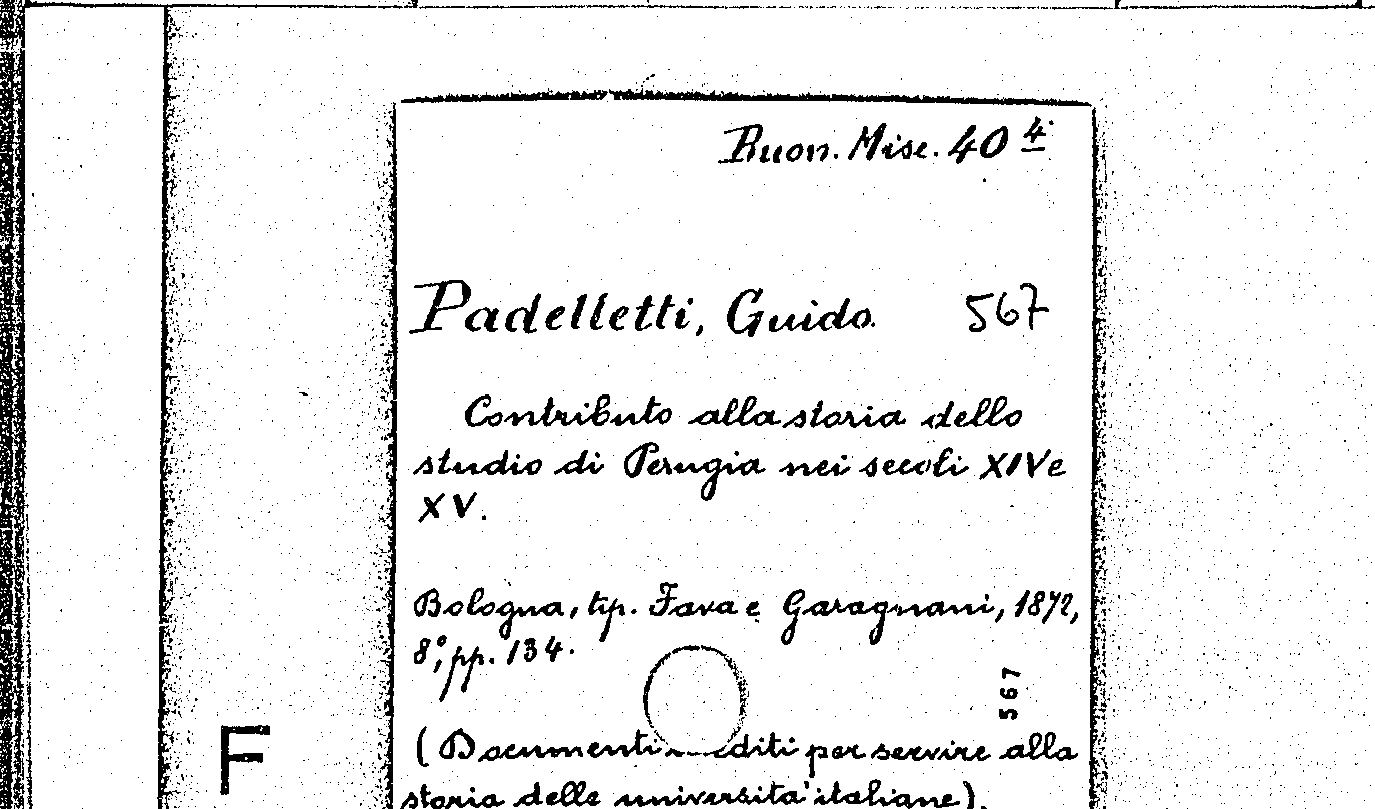 Buon. Misc. 40 4
Padelletti, Guido. 567
Contributo alla storia dello
studio di Perugia nei secoli XIV e
XV.
Bologna, tip. Fava e Garagnani, 1872,
8º, pp. 134.
567
(Documenti editi per servire alla
storia delle università italiane).
F